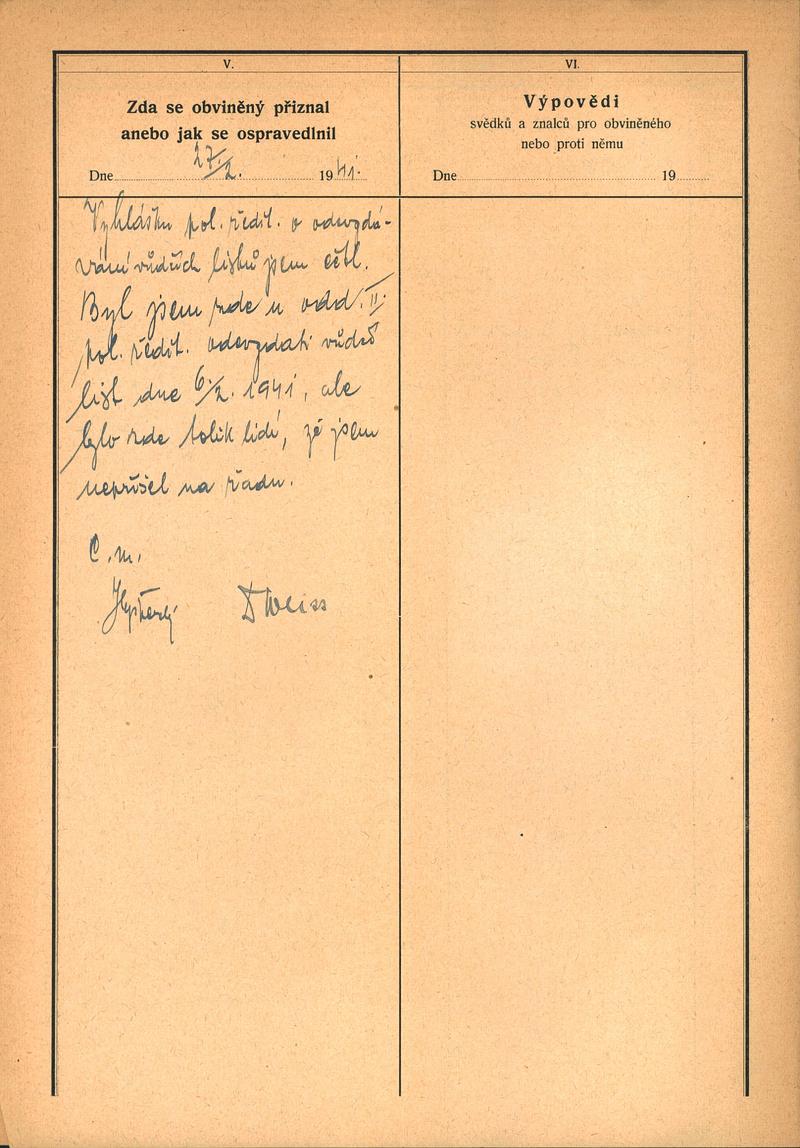 V.
Zda se obviněný přiznal
anebo jak se ospravedlnil
Dne 27./2. 1941.
Vyhlášku pol. ředit. o odevzdá-
vání vůdčích listů jsem četl.
Byl jsem zde u odd. II.
pol. ředit. odevzdati vůdčí
list dne 6./2. 1941, ale
bylo zde tolik lidí, že jsem
nepřišel na řadu.
C. m.
D Weiss
VI.
Výpovědi
svědků a znalců pro obviněného
nebo proti němu
Dne 19